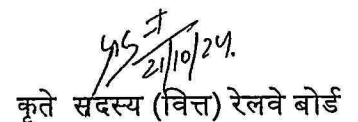 21/10/24.
कृते सदस्य (वित्त) रेलवे बोर्ड